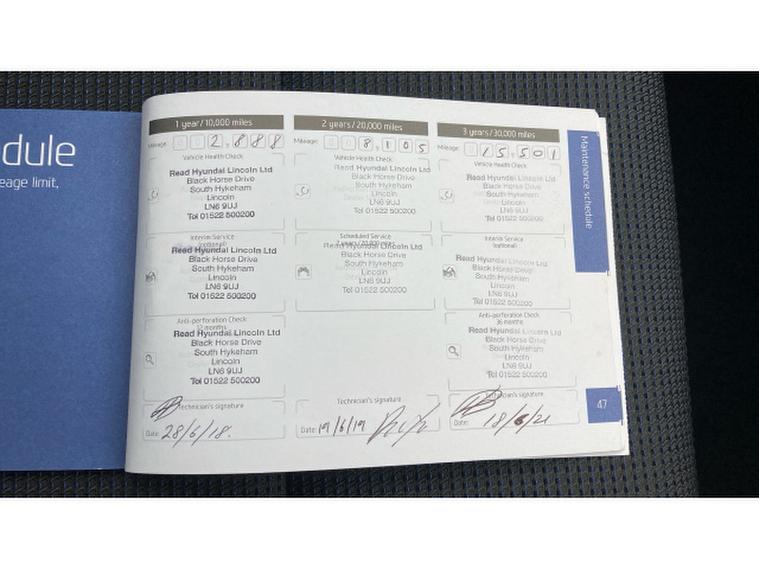 dule
eage limit,
1 year/10,000 miles
Mileage: 2,888
Vehicle Health Check:
Read Hyundai Lincoln Ltd
Black Horse Drive
South Hykeham
Lincoln
LN6 9UJ
Tel 01522 500200
Interim Service
(optional)
Read Hyundai Lincoln Ltd
Black Horse Drive
South Hykeham
Lincoln
LN6 9UJ
Tel 01522 500200
Anti-perforation Check
12 months
Read Hyundai Lincoln Ltd
Black Horse Drive
South Hykeham
Lincoln
LN6 9UJ
Tel 01522 500200
Technician's signature
Date: 28/6/18.
2 years/20,000 miles
Mileage: 8,105
Vehicle Health Check:
Read Hyundai Lincoln Ltd
Black Horse Drive
South Hykeham
Lincoln
LN6 9UJ
Tel 01522 500200
Scheduled Service
2 years/20,000 miles
Read Hyundai Lincoln Ltd
Black Horse Drive
South Hykeham
Lincoln
LN6 9UJ
Tel 01522 500200
Technician's signature
Date: 19/6/19
3 years/30,000 miles
Mileage: 15,501
Vehicle Health Check:
Read Hyundai Lincoln Ltd
Black Horse Drive
South Hykeham
Lincoln
LN6 9UJ
Tel 01522 500200
Interim Service
(optional)
Read Hyundai Lincoln Ltd
Black Horse Drive
South Hykeham
Lincoln
LN6 9UJ
Tel 01522 500200
Anti-perforation Check
36 months
Read Hyundai Lincoln Ltd
Black Horse Drive
South Hykeham
Lincoln
LN6 9UJ
Tel 01522 500200
Technician's signature
Date: 18/6/21
Maintenance schedule
47